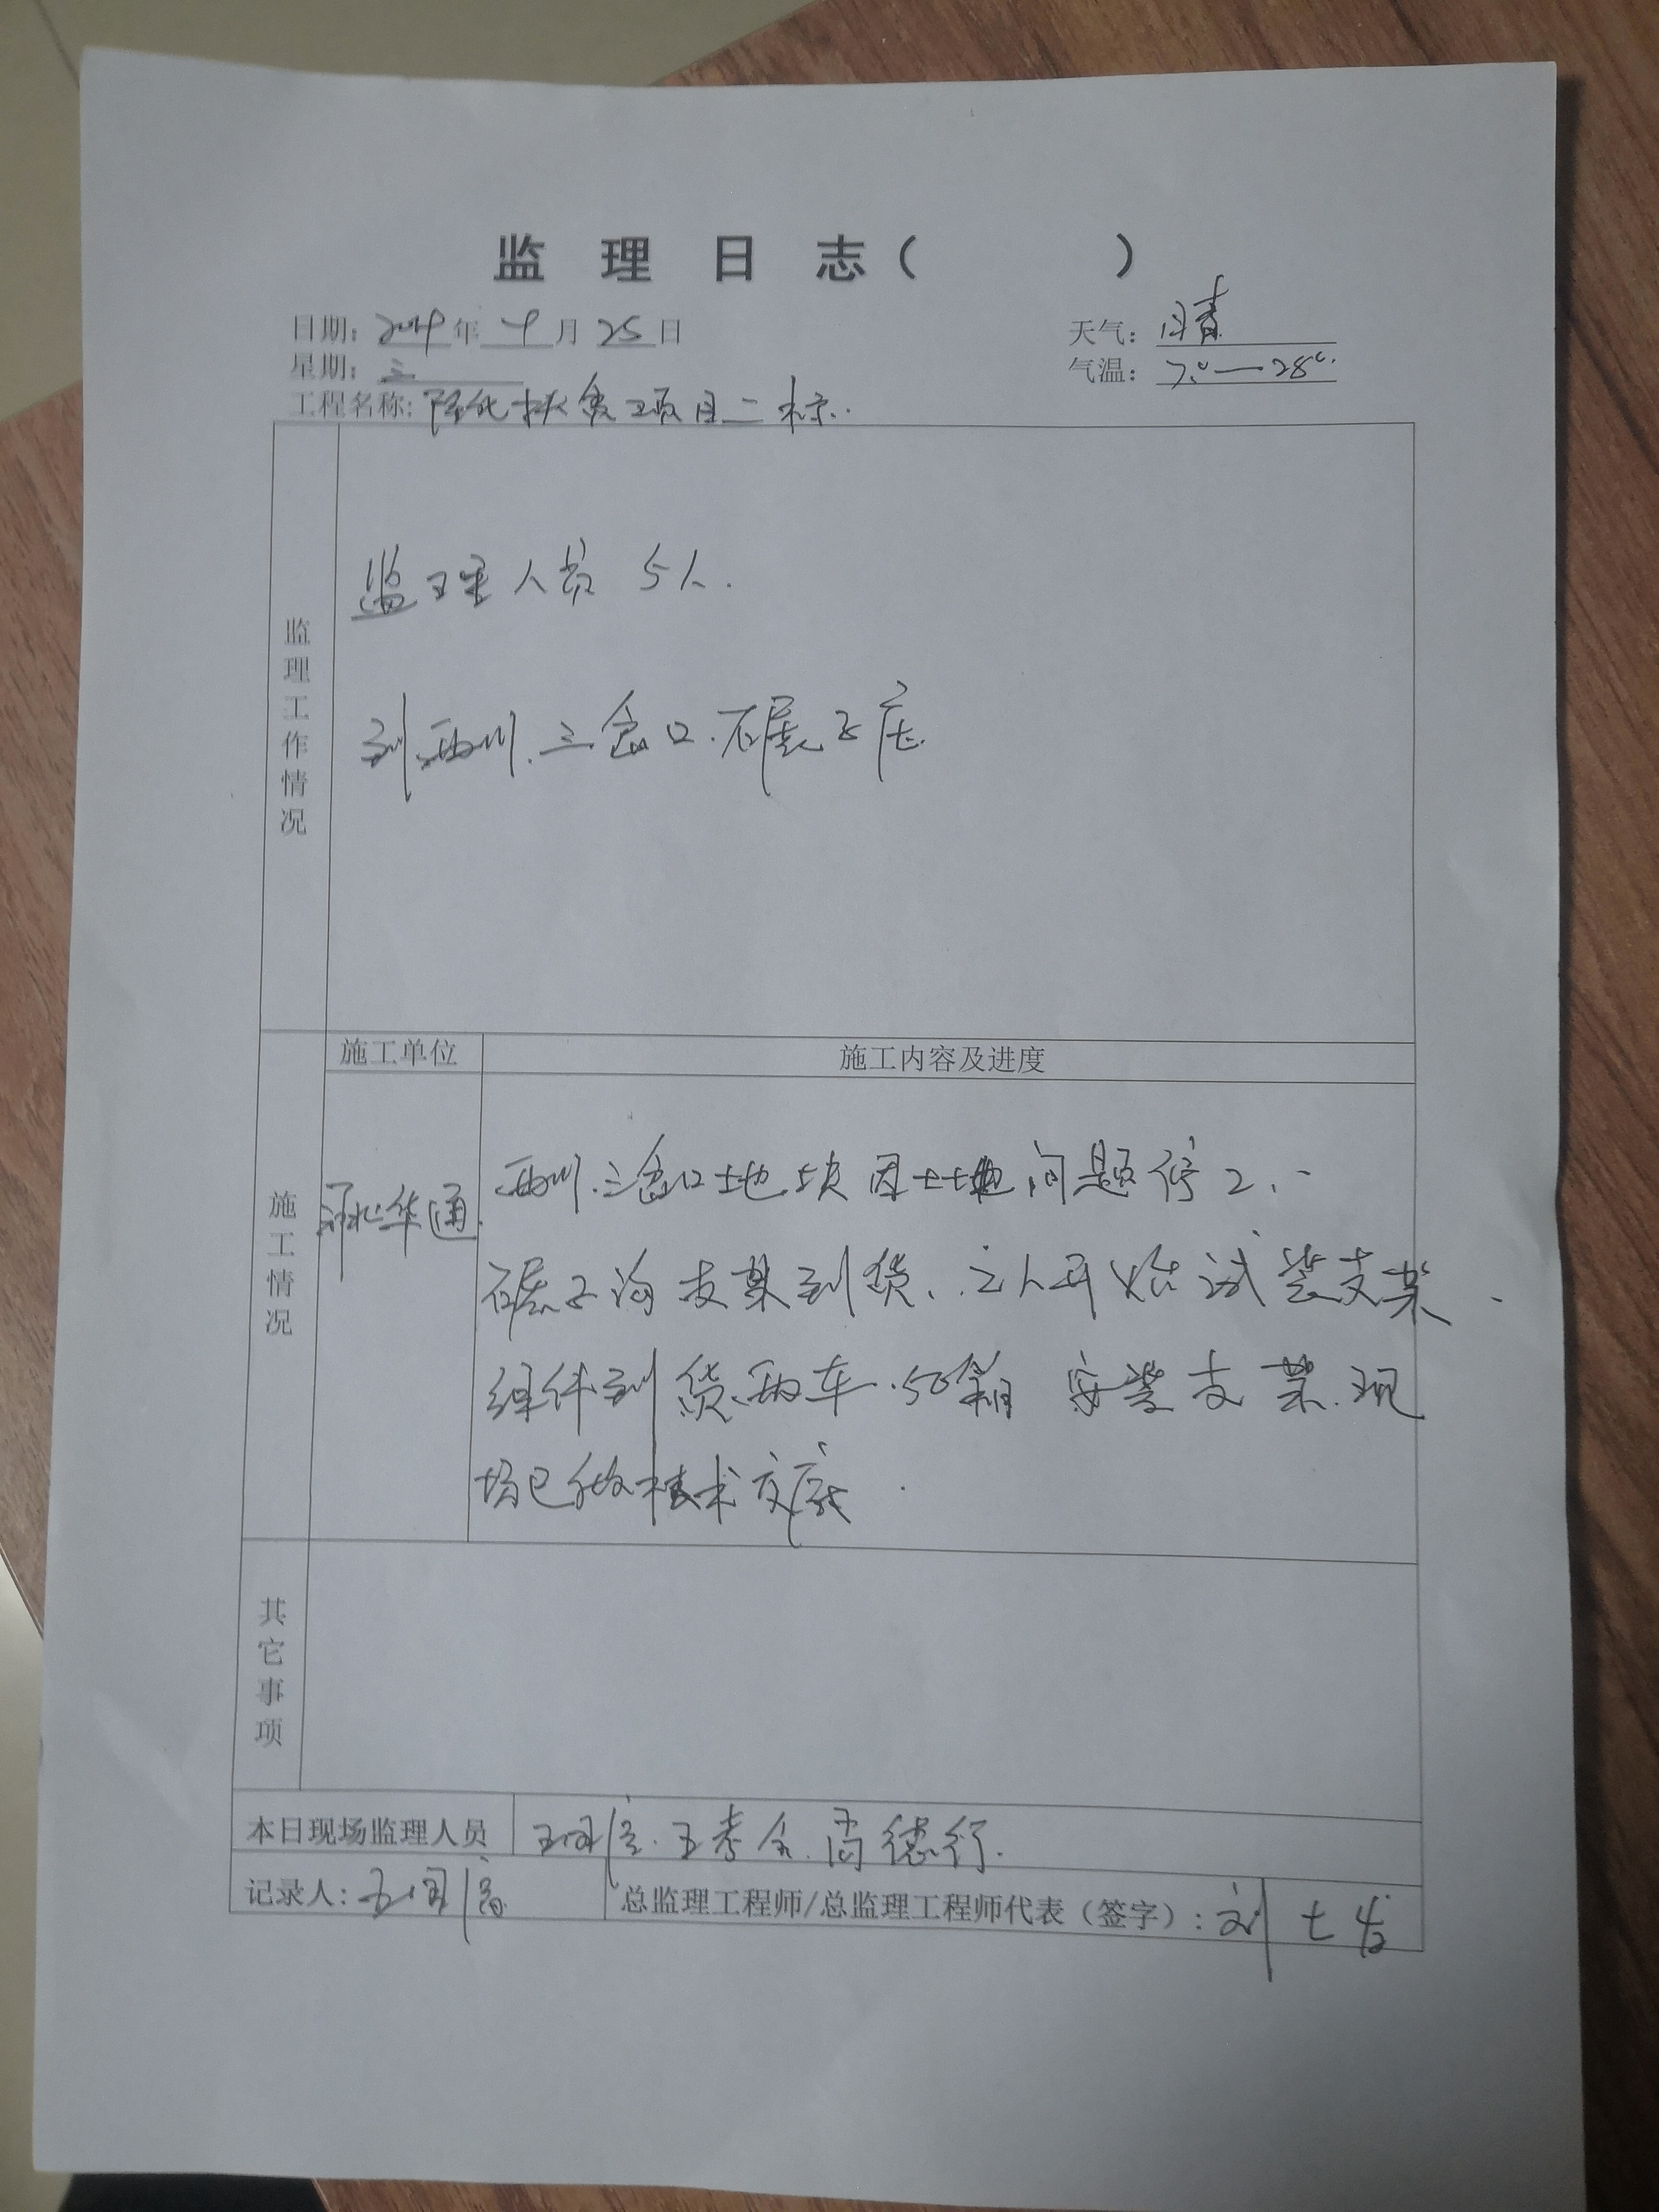 监理日志（ ）
日期: 年 月 25 日
天气: 晴
星期: 三
气温: 7°—28°C.
工程名称: 隆化扶贫项目二标.
监理工作情况
监理人员 5人.
到西川.三岔口.碾子
施工情况
施工单位
施工内容及进度
河北华通.
西川.三岔口土地块因土地问题停工.
碾子沟支架到货.工人开始试装支架.
组件到货两车.50箱 安装支架.现
场已做技术交底.
其它事项
本日现场监理人员 尚德行.
记录人:
总监理工程师/总监理工程师代表（签字）: 刘